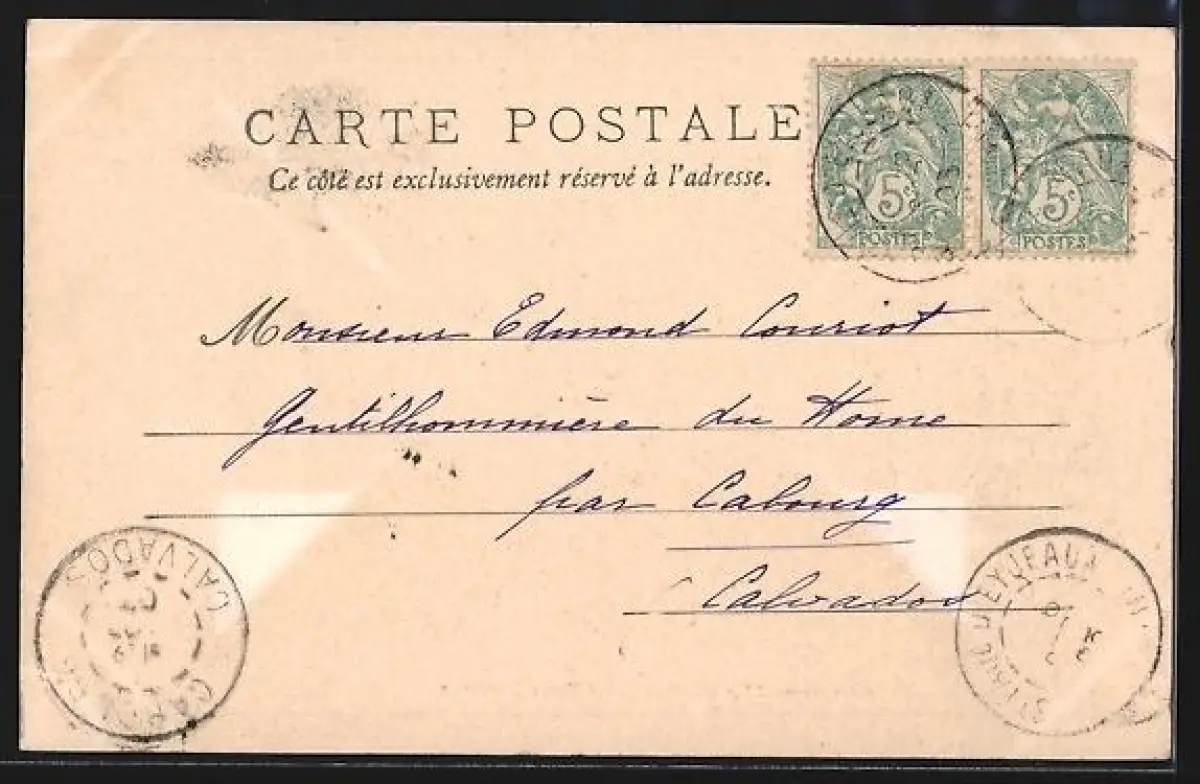 CARTE POSTALE
Ce côté est exclusivement réservé à l'adresse.
5c
POSTES
5c
POSTES
Monsieur Edmond Couriot
Gentilhommière du Home
par Cabourg
Calvados
CALVADOS